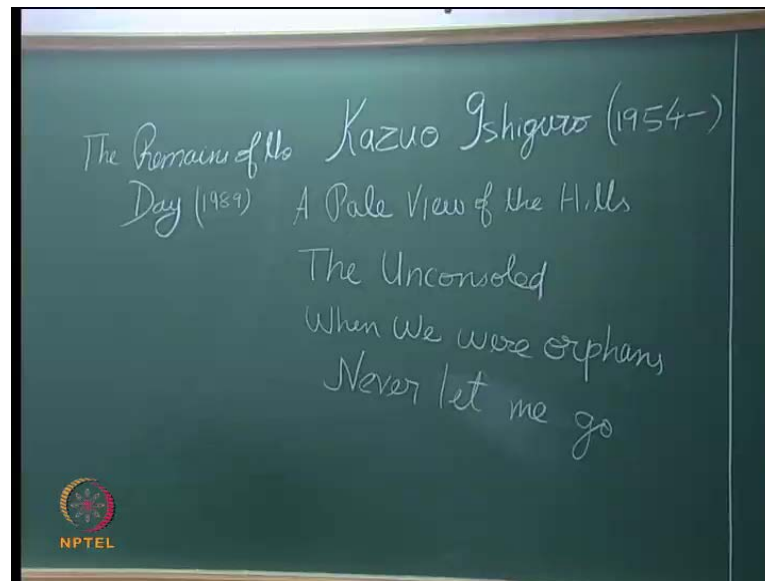 The Remains of the
Day (1989)
Kazuo Ishiguro (1954-)
A Pale View of the Hills
The Unconsoled
When We were orphans
Never let me go
NPTEL